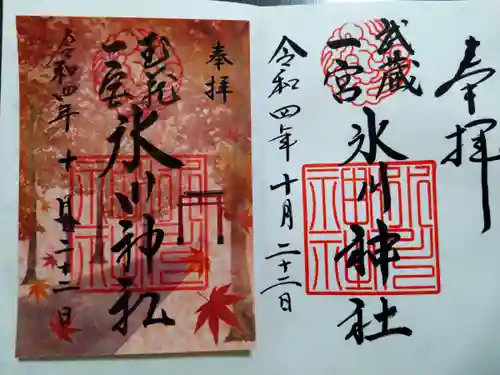 奉拝
武蔵
一宮
氷川神社
令和四年十月二十二日
奉拝
武蔵
一宮
氷川神社
令和四年十月二十二日